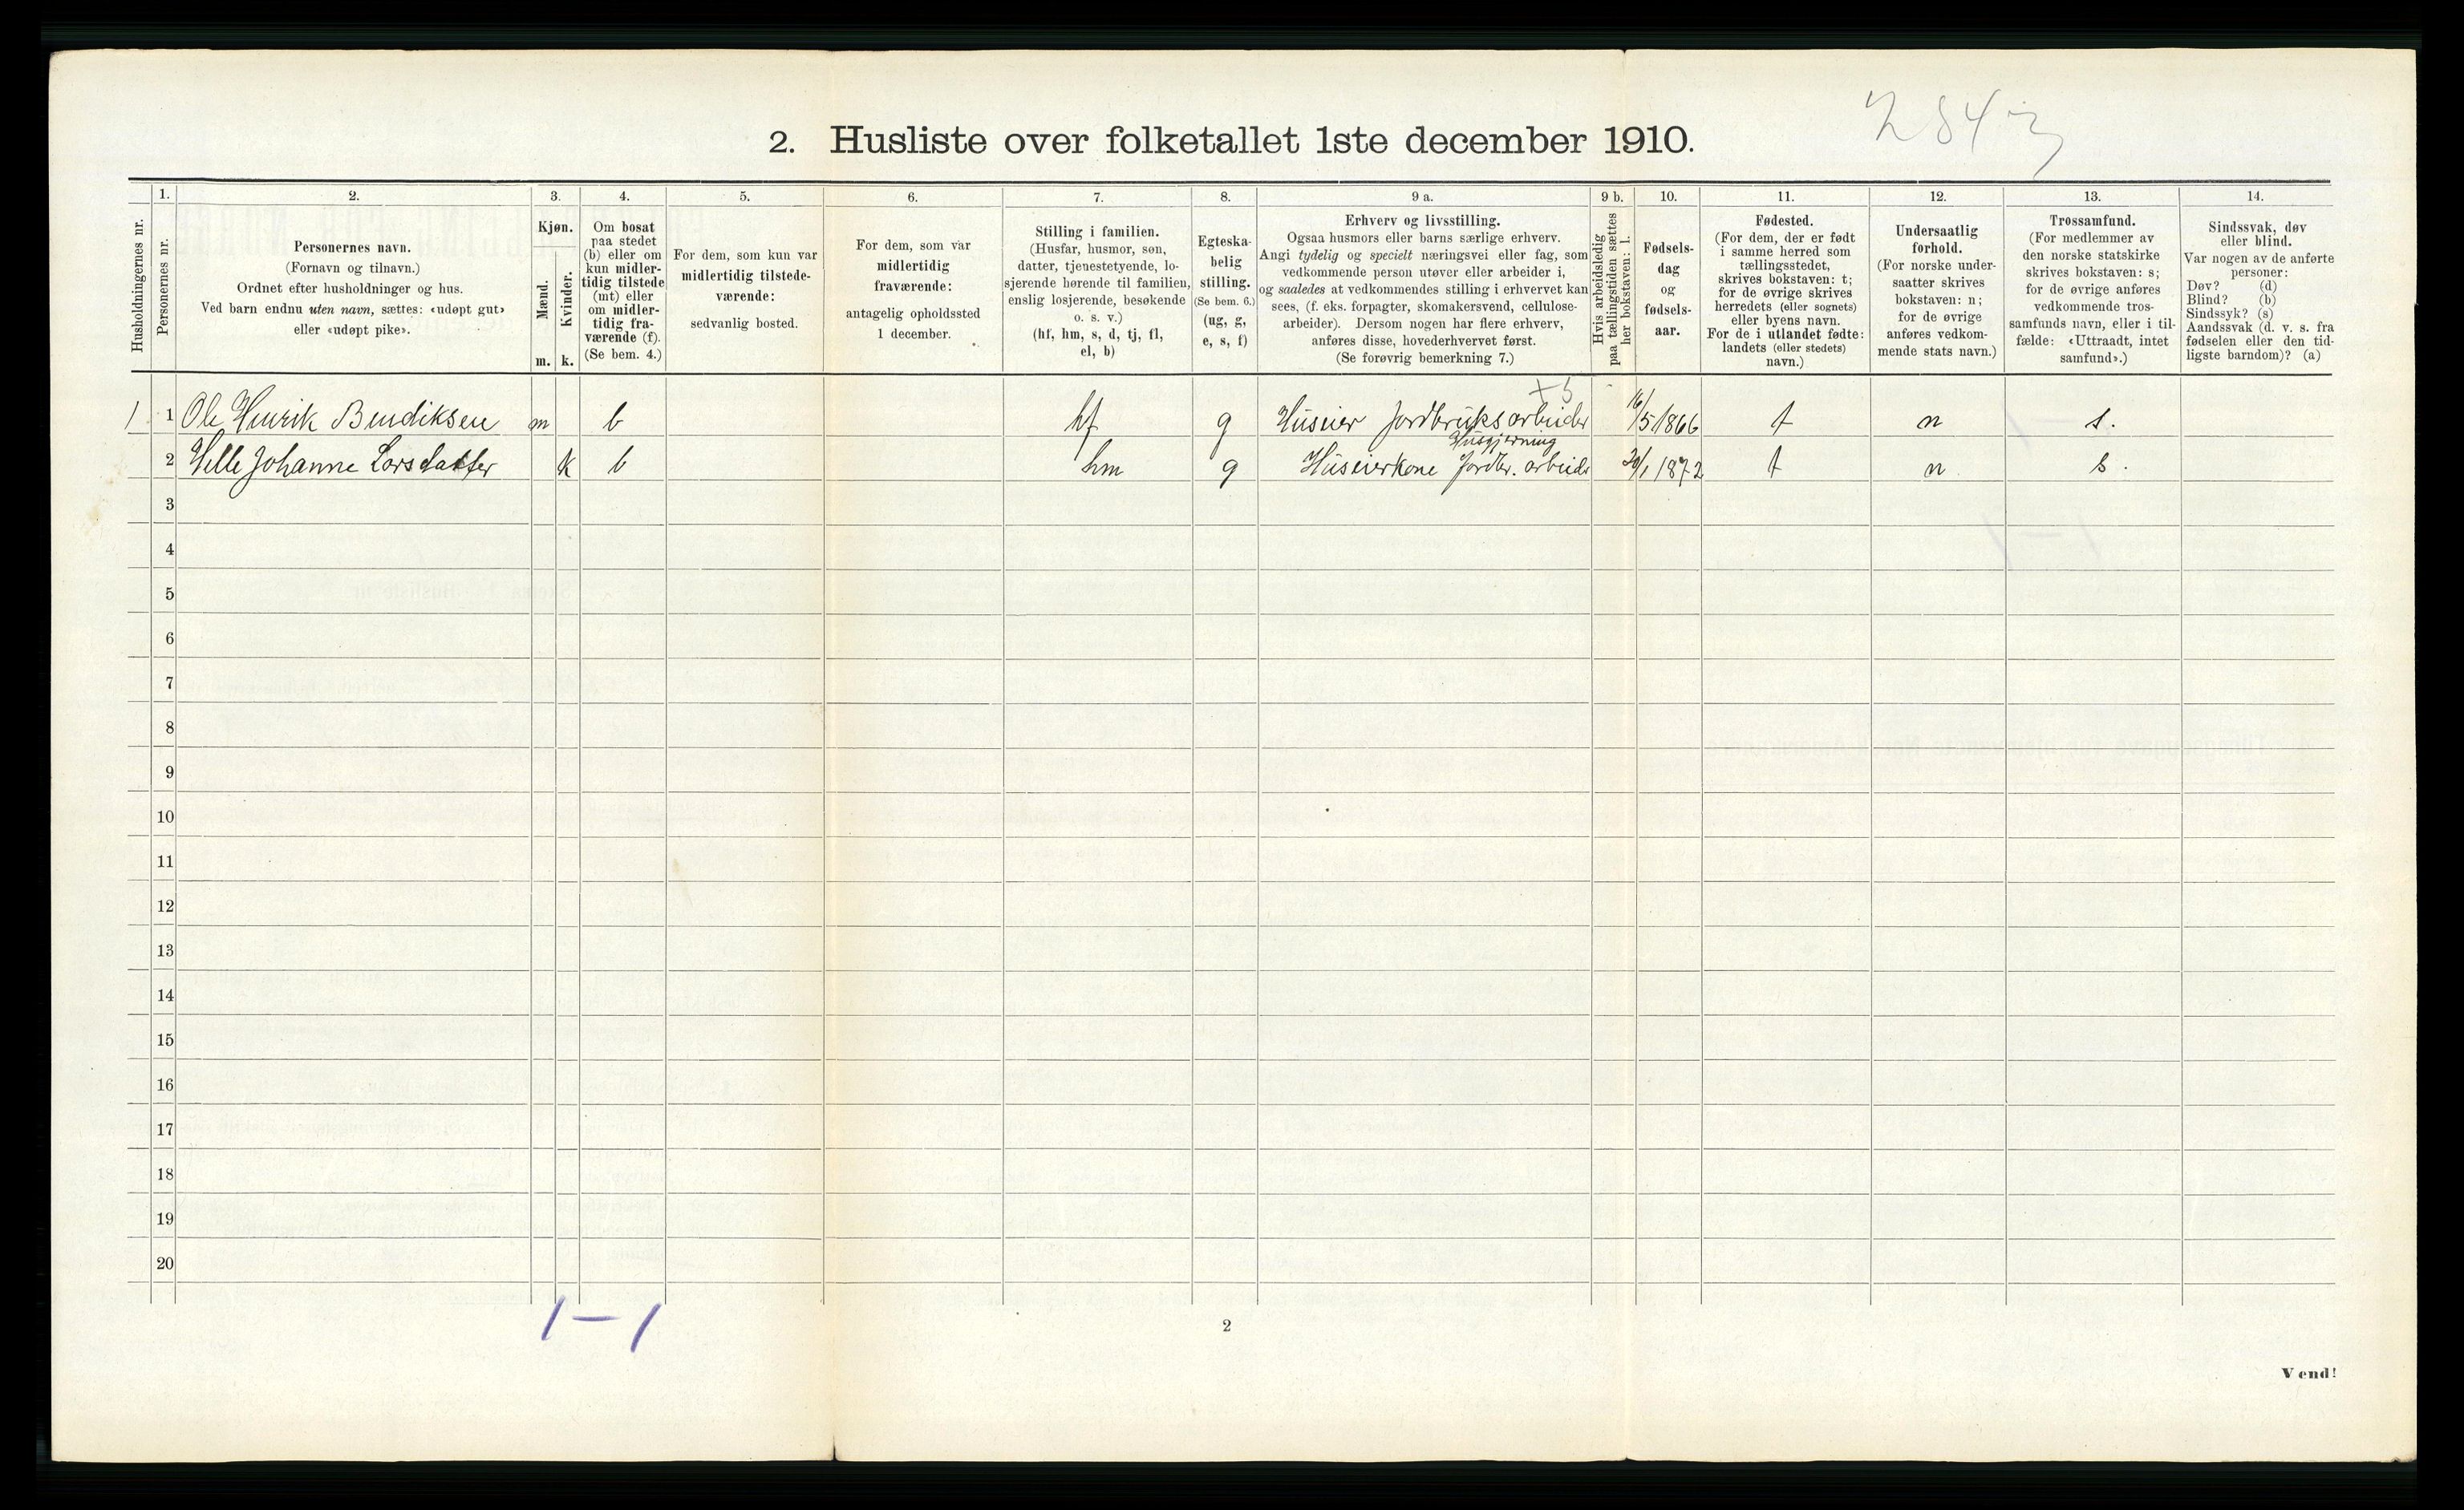 2843
2. Husliste over folketallet 1ste december 1910.
Husholdningernes nr.
1.
Personernes nr.
2.
Personernes navn.
(Fornavn og tilnavn.)
Ordnet efter husholdninger og hus.
Ved barn endnu uten navn, sættes: «udøpt gut»
eller «udøpt pike».
3.
Kjøn.
Mænd.
m.
Kvinder.
k.
4.
Om bosat
paa stedet
(b) eller om
kun midler-
tidig tilstede
(mt) eller
om midler-
tidig fra-
værende (f).
(Se bem. 4.)
5.
For dem, som kun var
midlertidig tilstede-
værende:
sedvanlig bosted.
6.
For dem, som var
midlertidig
fraværende:
antagelig opholdssted
1 december.
7.
Stilling i familien.
(Husfar, husmor, søn,
datter, tjenestetyende, lo-
sjerende hørende til familien,
enslig losjerende, besøkende
o. s. v.)
(hf, hm, s, d, tj, fl,
el, b)
8.
Egteska-
belig
stilling.
(Se bem. 6.)
(ug, g,
e, s, f)
9 a.
Erhverv og livsstilling.
Ogsaa husmors eller barns særlige erhverv.
Angi tydelig og specielt næringsvei eller fag, som
vedkommende person utøver eller arbeider i,
og saaledes at vedkommendes stilling i erhvervet kan
sees, (f. eks. forpagter, skomakersvend, cellulose-
arbeider). Dersom nogen har flere erhverv,
anføres disse, hovederhvervet først.
(Se forøvrig bemerkning 7.)
9 b.
Hvis arbeidsledig
paa tællingstiden sættes
her bokstaven: l.
10.
Fødsels-
dag
og
fødsels-
aar.
11.
Fødested.
(For dem, der er født
i samme herred som
tællingsstedet,
skrives bokstaven: t;
for de øvrige skrives
herredets (eller sognets)
eller byens navn.
For de i utlandet fødte:
landets (eller stedets)
navn.)
12.
Undersaatlig
forhold.
(For norske under-
saatter skrives
bokstaven: n;
for de øvrige
anføres vedkom-
mende stats navn.)
13.
Trossamfund.
(For medlemmer av
den norske statskirke
skrives bokstaven: s;
for de øvrige anføres
vedkommende tros-
samfunds navn, eller i til-
fælde: «Uttraadt, intet
samfund».)
14.
Sindssvak, døv
eller blind.
Var nogen av de anførte
personer:
Døv? (d)
Blind? (b)
Sindssyk? (s)
Aandssvak (d. v. s. fra
fødselen eller den tid-
ligste barndom)? (a)
+5
1 1 Ole Henrik Bendiksen m b hf g Huseier Jordbruksarbeider 16/5 1866 t n s.
Husgjerning
2 Helle Johanne Larsdatter k b hm g Huseierkone Jordbr. arbeide 20/1 1872 t n. s.
3
4
5
6
7
8
9
10
11
12
13
14
15
16
17
18
19
20
1-1
2
Vend!